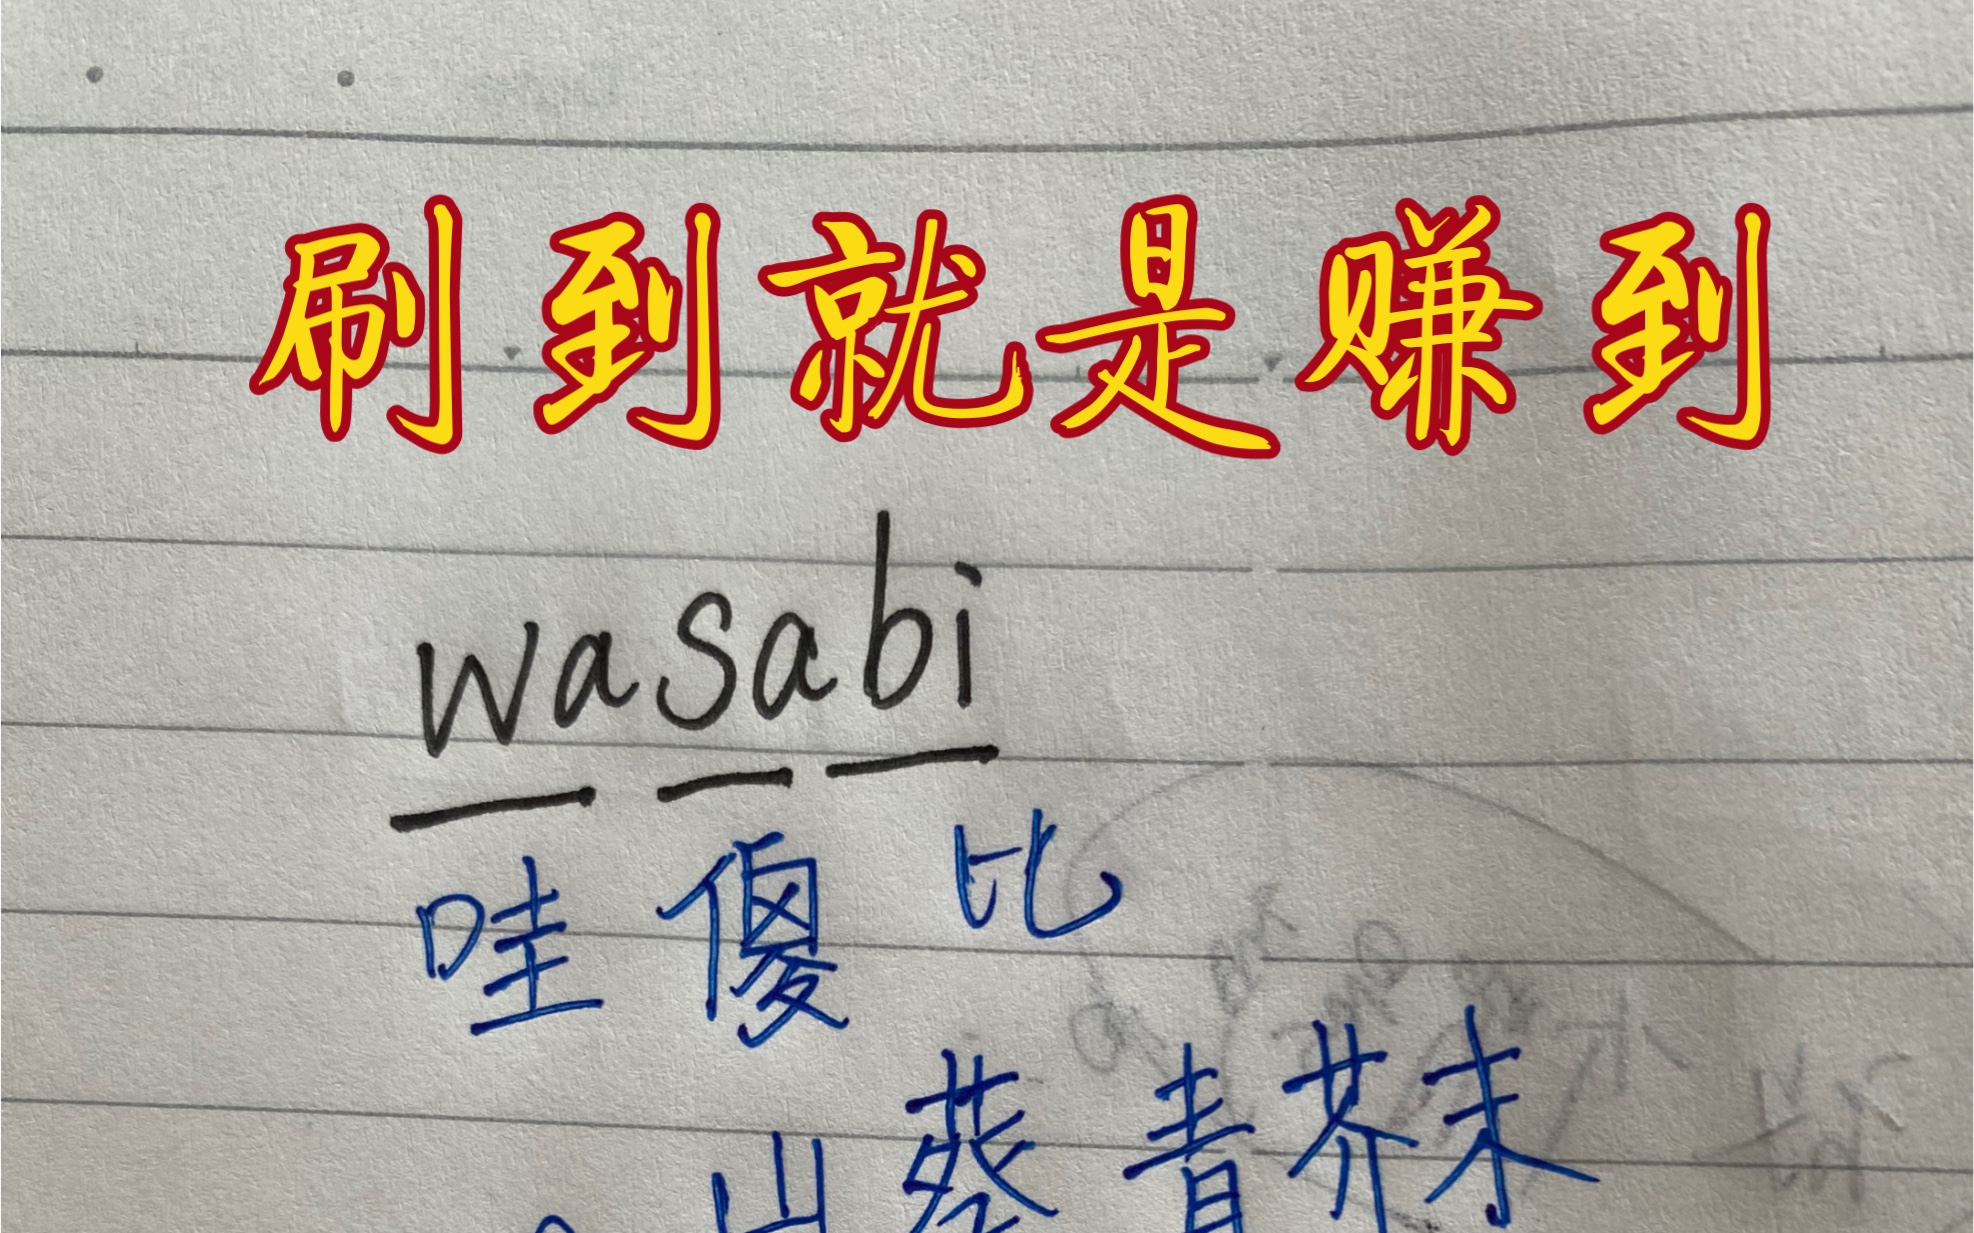 刷到就是赚到
wasabi
哇 傻 比
山葵 青芥末